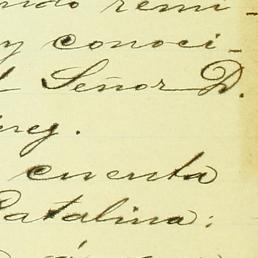 remi-
y conoci-
Señor D.
cuenta
Catalina: